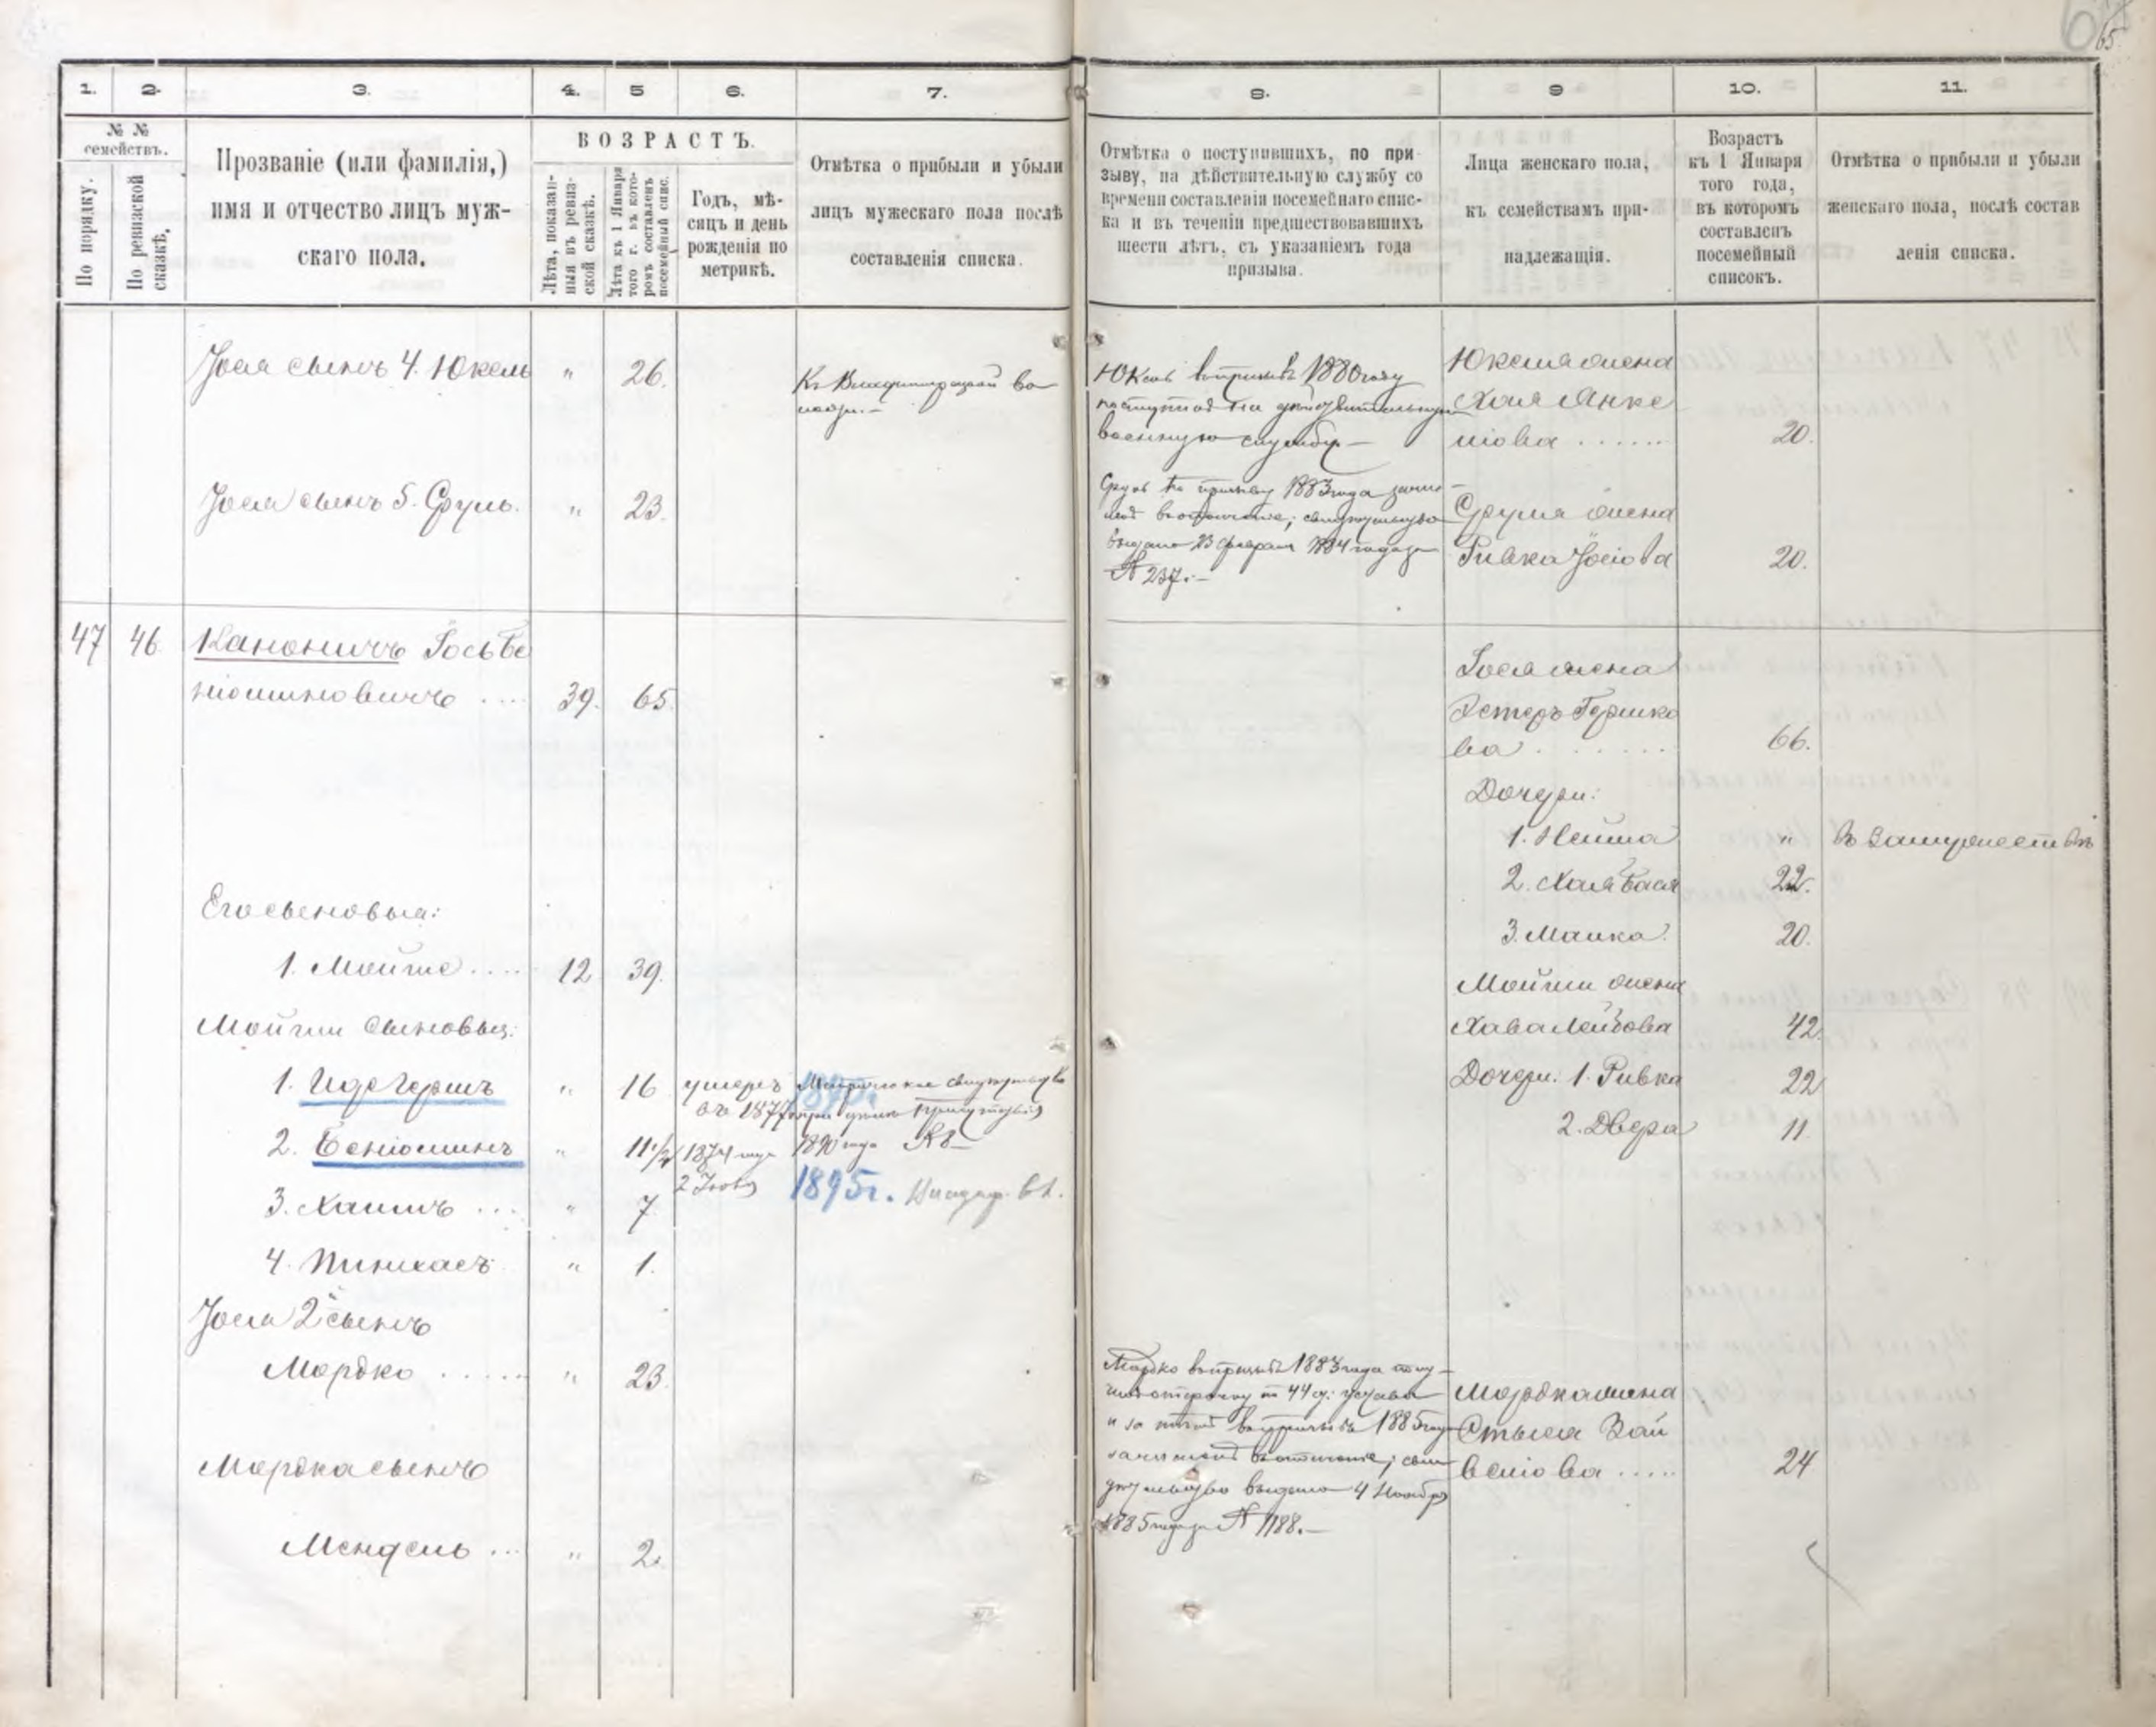 65.
1.
2.
3.
4.
5
6.
7.
8.
9
10.
11.
№ №
семействъ.
По порядку.
По ревизской
сказкѣ.
Прозваніе (или фамилія,)
имя и отчество лицъ муж-
скаго пола.
ВОЗРАСТЪ.
Лѣта, показан-
ныя въ ревиз-
ской сказкѣ.
Лѣта къ 1 Января
того г. въ кото-
ромъ составленъ
посемейный спис.
Годъ, мѣ-
сяцъ и день
рожденія по
метрикѣ.
Отмѣтка о прибыли и убыли
лицъ мужескаго пола послѣ
составленія списка.
Отмѣтка о поступившихъ, по при-
зыву, на дѣйствительную службу со
времени составленія посемейнаго спис-
ка и въ теченіи предшествовавшихъ
шести лѣтъ, съ указаніемъ года
призыва.
Лица женскаго пола,
къ семействамъ при-
надлежащія.
Возрастъ
къ 1 Января
того года,
въ которомъ
составленъ
посемейный
списокъ.
Отмѣтка о прибыли и убыли
женскаго пола, послѣ состав
ленія списка.
Іоселя сынъ 4. Юкель
"
26.
Юкель въ призывъ 1880 году
поступилъ на дѣйствительную
военную службу.—
Юкеля жена
Хая Янке
ліова ......
20.
Іоселя сынъ 5. Сруль.
"
23.
Сруль въ призывъ 1883 года зачис-
ленъ въ ополченіе; свидѣтельство
выдано 23 февраля 1884 года за
№ 237.—
Сруля жена
Ривка Іосіова
20.
47
46
Каноничъ Іосъ Бе
ніоминовичъ ....
39.
65.
Іоселя жена
Эстеръ Гершко
ва .......
66.
Дочери:
1. Нешa
"
Въ замужествѣ
2. Хая Бася
22.
3. Малка.
20.
Его сыновья:
1. Мойше ....
12
39.
Мойши жена
Хава Лейбова
42.
Мойши сыновья:
1. Идегершъ
"
16
умеръ
въ 1877
Метрическое свидѣтельство
Дочери: 1. Ривка
22
2. Беніоминъ
"
11 1/2
1874 года
2 Іюня
1890 года № 8—
1895г.
2. Двера
11.
3. Хаимъ ...
"
7.
4. Пинхасъ
"
1.
Іоселя 2й сынъ
Мордко .....
"
23.
Мордко въ призывъ 1883 года полу-
чилъ отсрочку по 44 ст: устава
и за тѣмъ въ призывъ 1885 году
зачисленъ въ ополченіе; сви-
дѣтельство выдано 4 Ноября
1885 года за № 1188.—
Мордка жена
Стыся Зай
веліова .....
24
Мордка сынъ
Мендель ...
"
2.